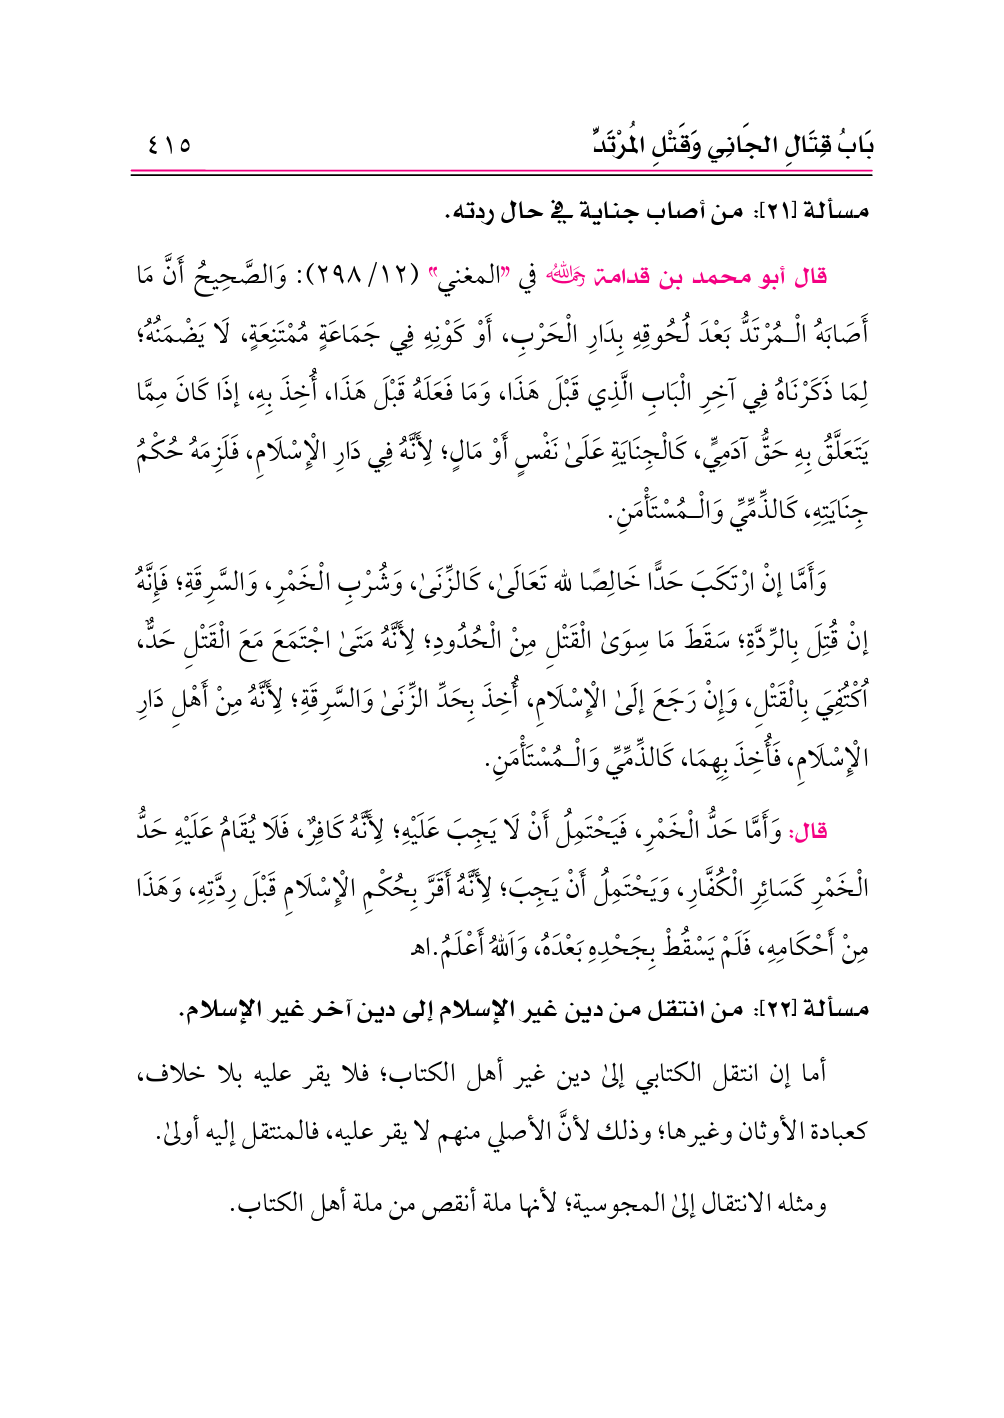 بَابُ قِتَالِ الجَانِي وَقَتْلِ المُرْتَدِّ ٤١٥
مسألة [٢١]: من أصاب جناية في حال ردته.
قال أبو محمد بن قدامة رحمه الله في "المغني" (١٢/ ٢٩٨): وَالصَّحِيحُ أَنَّ مَا
أَصَابَهُ الْـمُرْتَدُّ بَعْدَ لُحُوقِهِ بِدَارِ الْحَرْبِ، أَوْ كَوْنِهِ فِي جَمَاعَةٍ مُمْتَنِعَةٍ، لَا يَضْمَنُهُ؛
لِمَا ذَكَرْنَاهُ فِي آخِرِ الْبَابِ الَّذِي قَبْلَ هَذَا، وَمَا فَعَلَهُ قَبْلَ هَذَا، أُخِذَ بِهِ، إذَا كَانَ مِمَّا
يَتَعَلَّقُ بِهِ حَقُّ آدَمِيٍّ، كَالْجِنَايَةِ عَلَىٰ نَفْسٍ أَوْ مَالٍ؛ لِأَنَّهُ فِي دَارِ الْإِسْلَامِ، فَلَزِمَهُ حُكْمُ
جِنَايَتِهِ، كَالذِّمِّيِّ وَالْـمُسْتَأْمَنِ.
وَأَمَّا إنْ ارْتَكَبَ حَدًّا خَالِصًا لله تَعَالَىٰ، كَالزِّنَىٰ، وَشُرْبِ الْخَمْرِ، وَالسَّرِقَةِ؛ فَإِنَّهُ
إنْ قُتِلَ بِالرِّدَّةِ؛ سَقَطَ مَا سِوَىٰ الْقَتْلِ مِنْ الْحُدُودِ؛ لِأَنَّهُ مَتَىٰ اجْتَمَعَ مَعَ الْقَتْلِ حَدٌّ،
اُكْتُفِيَ بِالْقَتْلِ، وَإِنْ رَجَعَ إلَىٰ الْإِسْلَامِ، أُخِذَ بِحَدِّ الزِّنَىٰ وَالسَّرِقَةِ؛ لِأَنَّهُ مِنْ أَهْلِ دَارِ
الْإِسْلَامِ، فَأُخِذَ بِهِمَا، كَالذِّمِّيِّ وَالْـمُسْتَأْمَنِ.
قال: وَأَمَّا حَدُّ الْخَمْرِ، فَيَحْتَمِلُ أَنْ لَا يَجِبَ عَلَيْهِ؛ لِأَنَّهُ كَافِرٌ، فَلَا يُقَامُ عَلَيْهِ حَدُّ
الْخَمْرِ كَسَائِرِ الْكُفَّارِ، وَيَحْتَمِلُ أَنْ يَجِبَ؛ لِأَنَّهُ أَقَرَّ بِحُكْمِ الْإِسْلَامِ قَبْلَ رِدَّتِهِ، وَهَذَا
مِنْ أَحْكَامِهِ، فَلَمْ يَسْقُطْ بِجَحْدِهِ بَعْدَهُ، وَاَللهُ أَعْلَمُ.اهـ
مسألة [٢٢]: من انتقل من دين غير الإسلام إلى دين آخر غير الإسلام.
أما إن انتقل الكتابي إلىٰ دين غير أهل الكتاب؛ فلا يقر عليه بلا خلاف،
كعبادة الأوثان وغيرها؛ وذلك لأنَّ الأصلي منهم لا يقر عليه، فالمنتقل إليه أولىٰ.
ومثله الانتقال إلىٰ المجوسية؛ لأنها ملة أنقص من ملة أهل الكتاب.